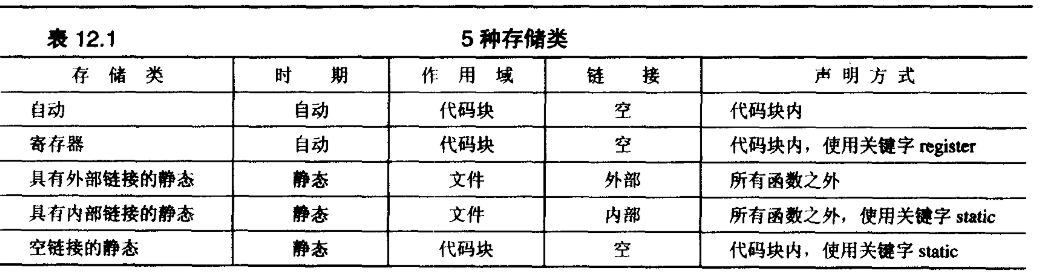 表 12.1 5 种存储类
存 储 类 时 期 作 用 域 链 接 声 明 方 式
自动 自动 代码块 空 代码块内
寄存器 自动 代码块 空 代码块内，使用关键字 register
具有外部链接的静态 静态 文件 外部 所有函数之外
具有内部链接的静态 静态 文件 内部 所有函数之外，使用关键字 static
空链接的静态 静态 代码块 空 代码块内，使用关键字 static